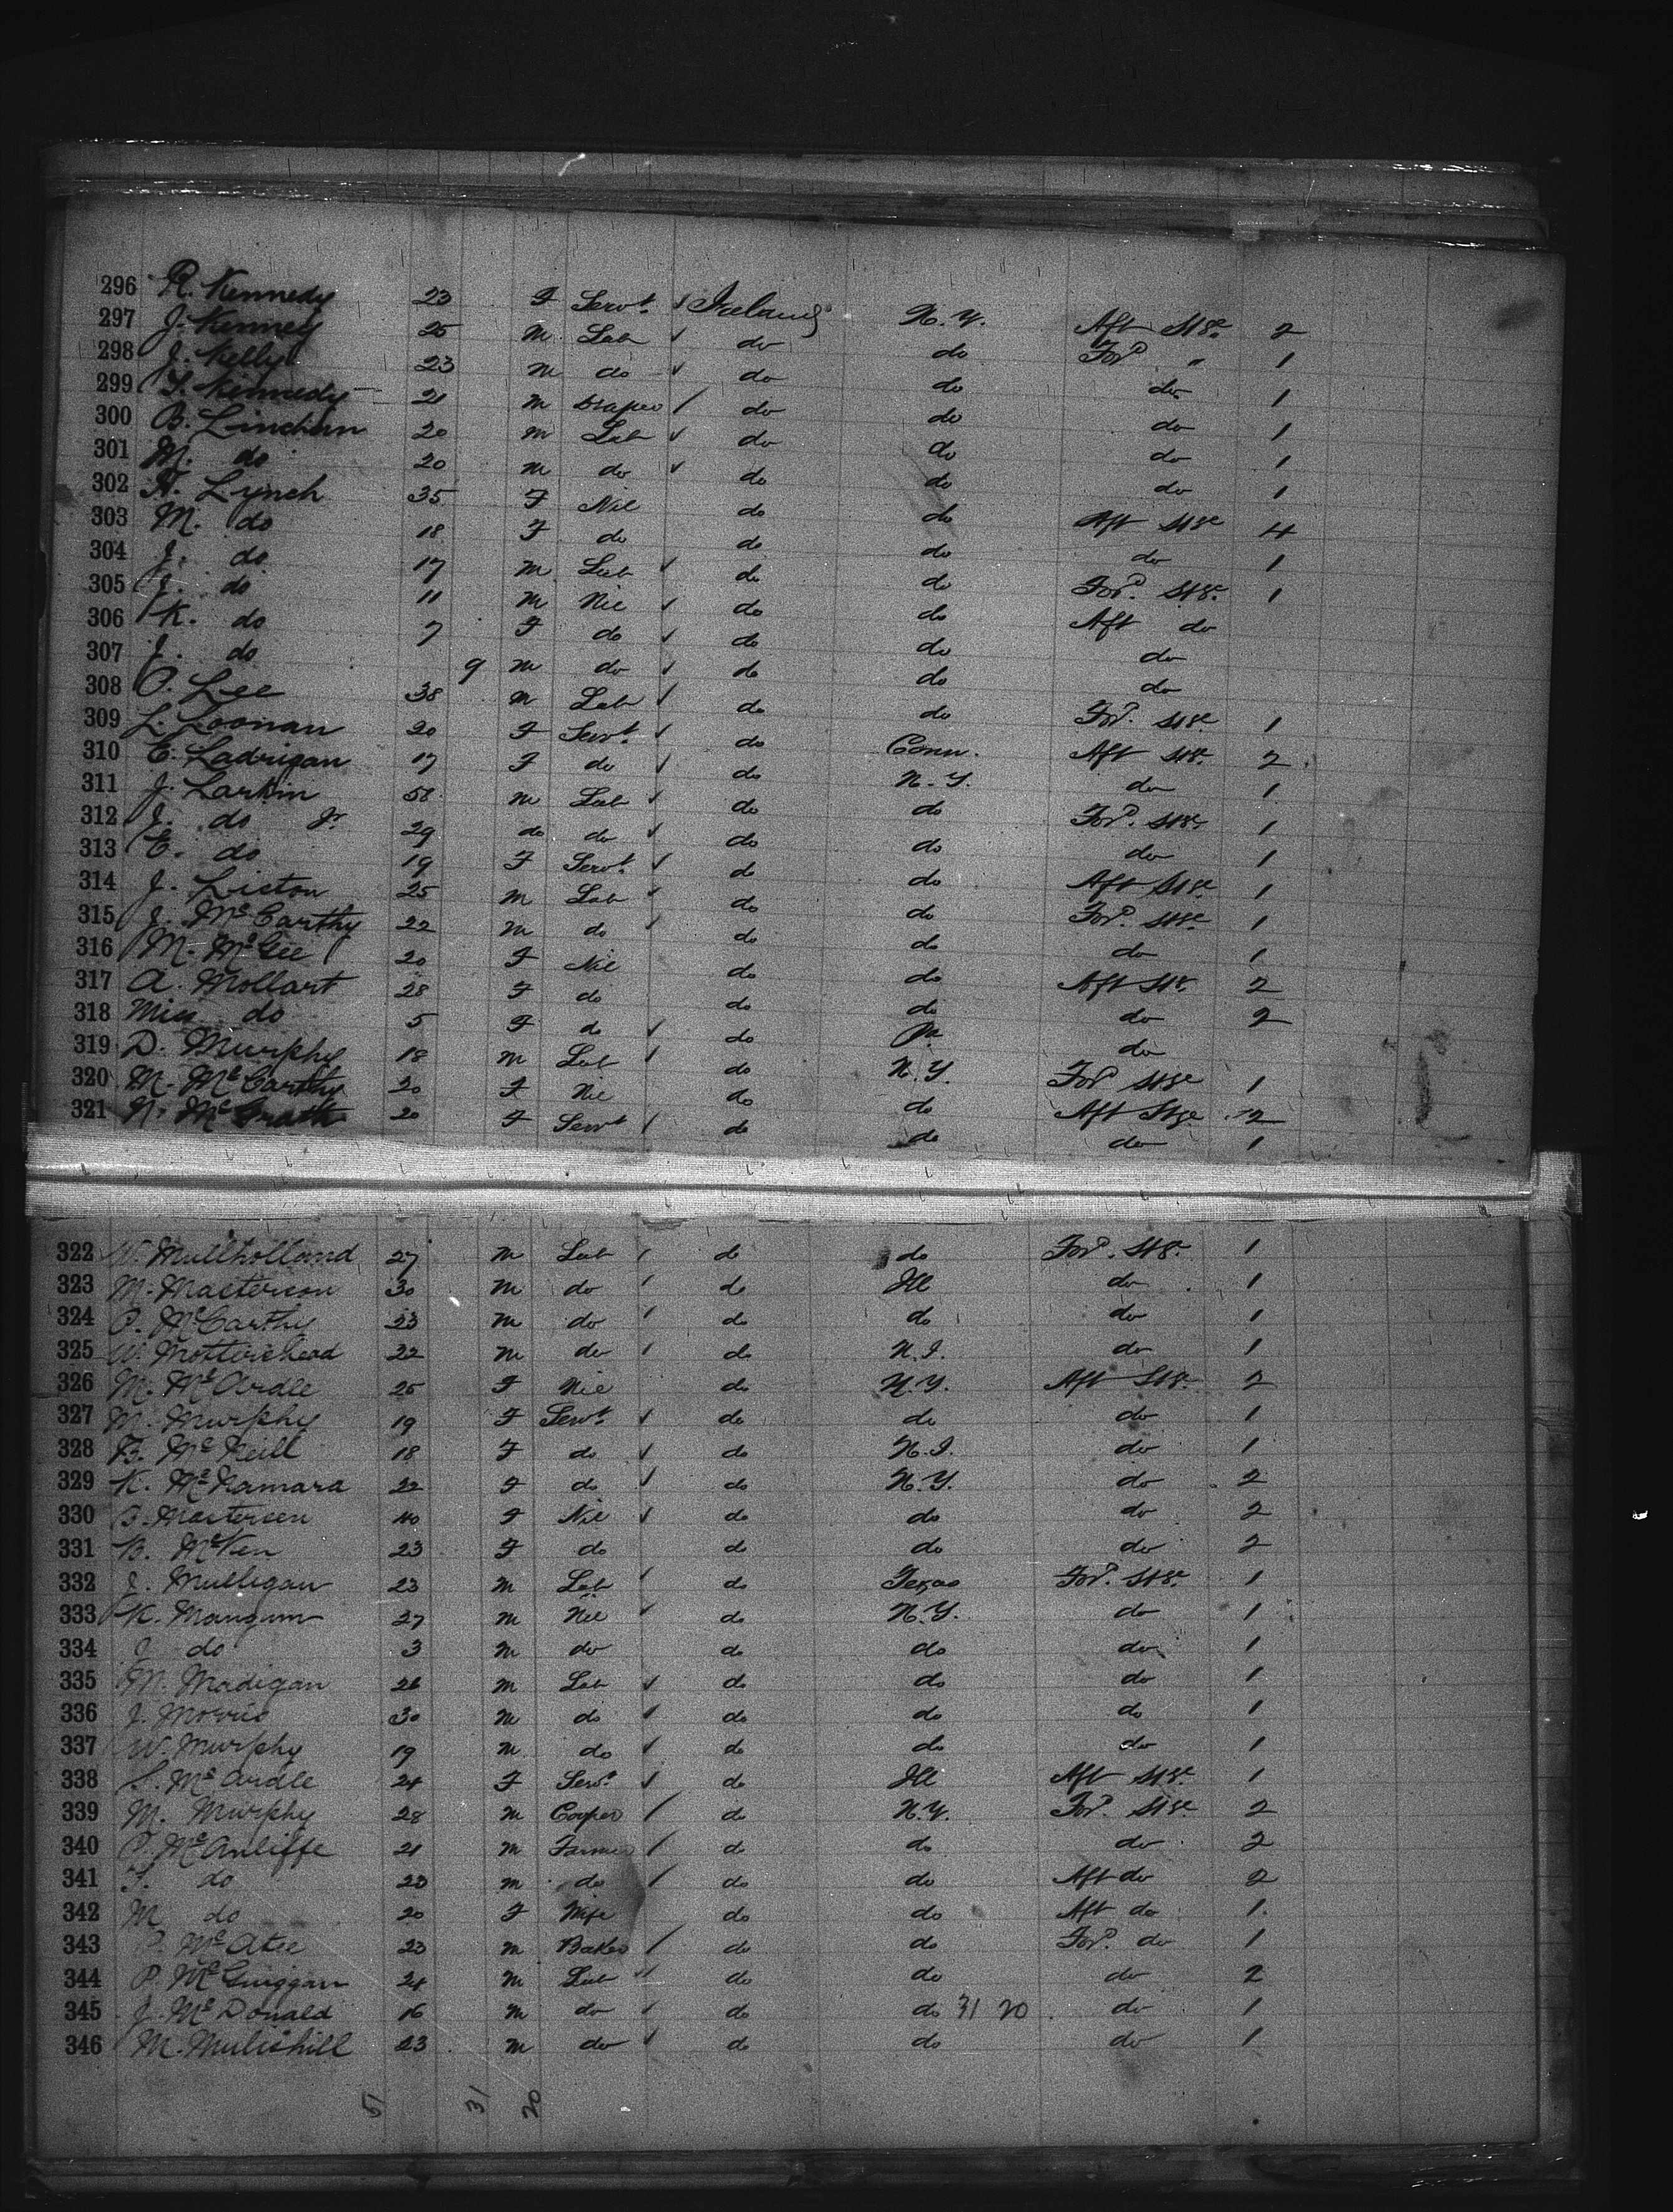 296 R. Kennedy 23 F Servt. ✓ Ireland N.Y. Aft Stge 2
297 J. Kenney 25 M Lab ✓ do do Ford " 1
298 J. Kelly 23 M do ✓ do do do 1
299 T. Kennedy 21 M Draper / do do do 1
300 B. Linehan 20 M Lab ✓ do do do 1
301 M. do 20 M do ✓ do do do 1
302 H. Lynch 35 F Nil do do Aft Stge 4
303 M. do 18 F do do do do 1
304 J. do 17 M Lab ✓ do do Ford. Stge. 1
305 J. do 11 M Nil ✓ do do Aft do
306 K. do 7 F do ✓ do do do
307 J. do 9 M do ✓ do do do
308 P. Lee 38 M Lab ✓ do do Ford. Stge 1
309 L. Loonan 20 F Servt. ✓ do Conn. Aft Stge. 2
310 E. Ladrigan 17 F do ✓ do N.Y. do 1
311 J. Larkin 58 M Lab ✓ do do Ford. Stge. 1
312 J. do Jr. 29 do do ✓ do do do 1
313 E. do 19 F Servt. ✓ do do Aft Stge 1
314 J. Liston 25 M Lab ✓ do do Ford. Stge. 1
315 J. McCarthy 22 M do ✓ do do do 1
316 M. McGee 20 F Nil do do Aft Stge. 2
317 A. Mollart 28 F do do do do 2
318 Miss do 5 F do ✓ do Pa do
319 D. Murphy 18 M Lab ✓ do N.Y. Ford Stge 1
320 M. McCarthy 20 F Nil do do Aft Stge 2
321 N. McGrath 20 F Servt / do do do 1
322 W. Mullholland 27 M Lab / do do Ford. Stge. 1
323 M. Masterson 30 M do / do Ill do 1
324 P. McCarthy 23 M do / do do do 1
325 W. Mottershead 22 M do / do N.J. do 1
326 M. McArdle 25 F Nil do N.Y. Aft Stge. 2
327 M. Murphy 19 F Servt. ✓ do do do 1
328 B. McNeill 18 F do ✓ do N.J. do 1
329 K. McNamara 22 F do ✓ do N.Y. do 2
330 B. Masterson 40 F Nil ✓ do do do 2
331 B. McVen 23 F do do do do 2
332 J. Mulligan 23 M Lab / do Texas Ford. Stge. 1
333 K. Mangum 27 M Nil ✓ do N.Y. do 1
334 J. do 3 M do do do do 1
335 M. Madigan 26 M Lab ✓ do do do 1
336 J. Morris 30 M do ✓ do do do 1
337 W. Murphy 19 M do ✓ do do do 1
338 S. McArdle 24 F Servt ✓ do Ill Aft Stge. 1
339 M. Murphy 28 M Cooper / do N.Y. Ford. Stge 2
340 P. McAuliffe 21 M Farmer / do do do 2
341 T. do 23 M do / do do Aft do 2
342 M do 20 F Wife do do Aft do 1
343 P. McAtee 23 M Baker / do do Ford. do 1
344 P. McGuiggan 24 M Lab ✓ do do do 2
345 J. McDonald 16 M do ✓ do do 31 20 do 1
346 M. Mulishill 23 M do ✓ do do do 1
51 31 20